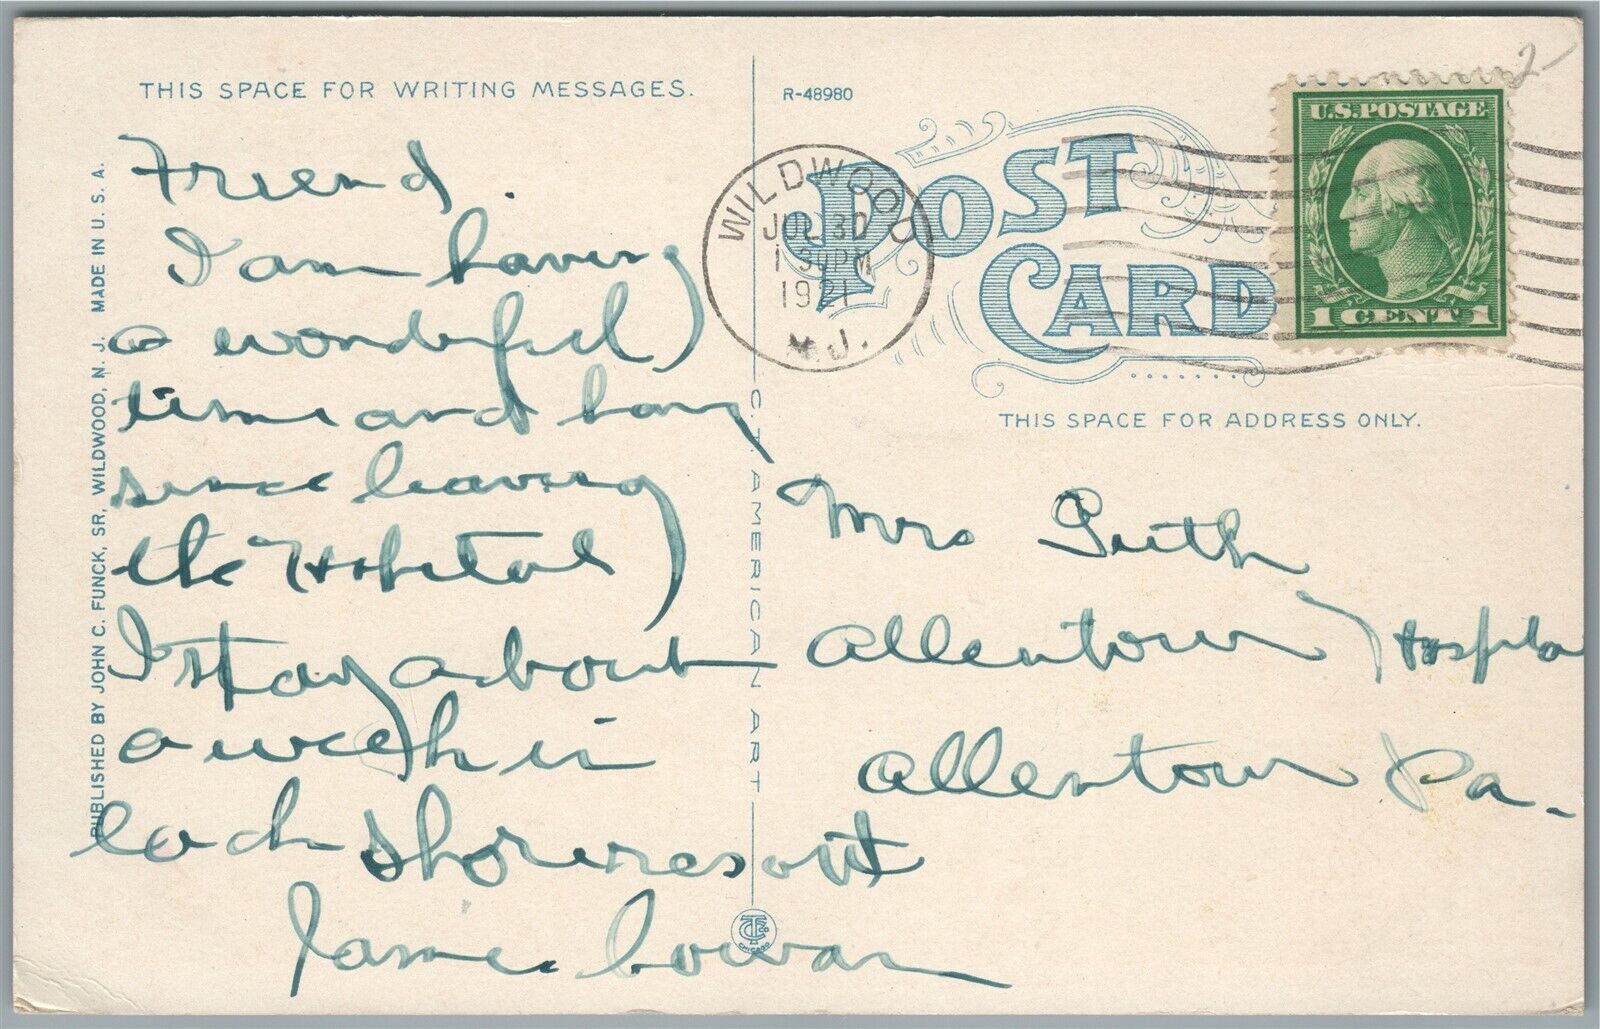 THIS SPACE FOR WRITING MESSAGES.
Friend.
I am having
a wonderful
time and hav
since leaving
the Hospital
I stay about
a week in
each shore resort
James Cowan
PUBLISHED BY JOHN C. FUNCK, SR, WILDWOOD, N. J. MADE IN U. S. A.
C. T. AMERICAN ART
CHICAGO
R-48980
POST CARD
WILDWOOD
JUL 30
1 30 PM
1921
N.J.
U.S. POSTAGE
1 CENT 1
2-
THIS SPACE FOR ADDRESS ONLY.
Mrs
Allentown Hospita
Allentown Pa.